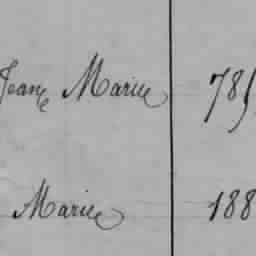 Jean Marie 785
Marie 188